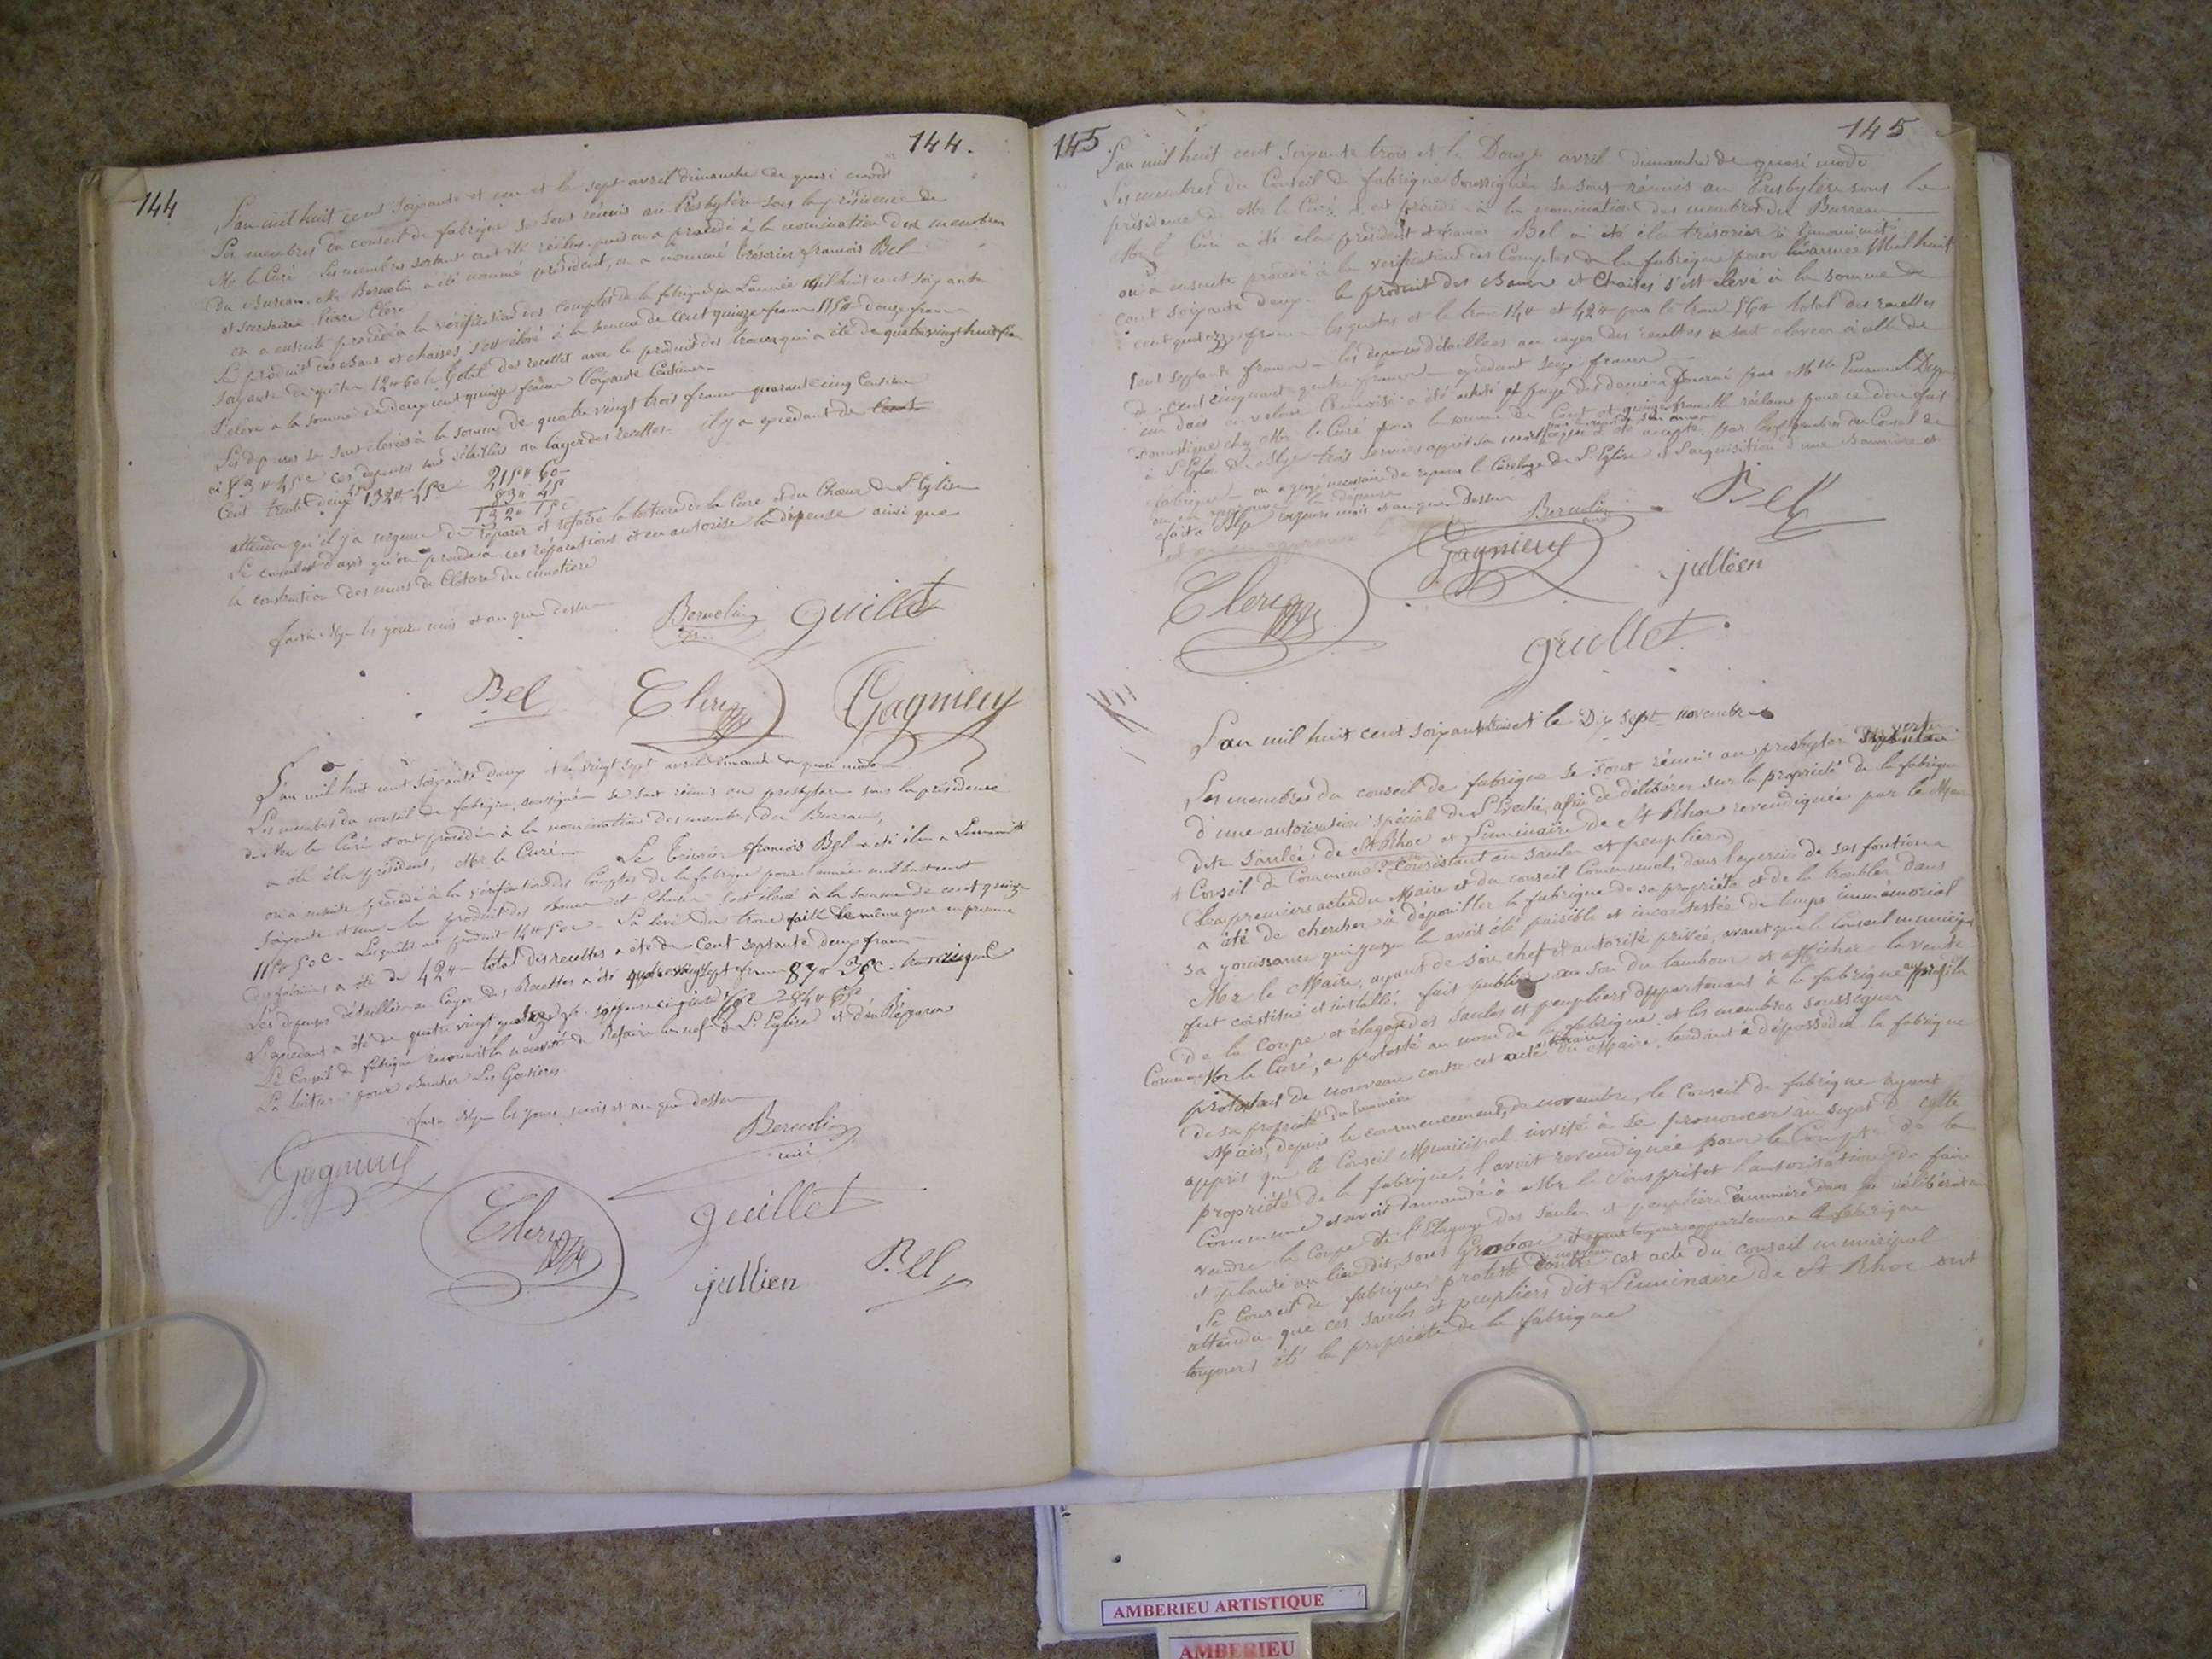 144
144.
L'an mil huit cent soixante et un et le sept avril dimanche de quasi modo
Les membres du conseil de fabrique se sont réunis au Presbytère sous la présidence de
Mr le Curé. Les membres sortant ont été réélus. puis on a procédé à la nomination des membres
du Bureau. Mr Bernolin a été nommé président, on a nommé trésorier françois Bel
et secrétaire Pierre Clerc
on a ensuite procédé à la vérification des comptes de la fabrique pr L'année mil huit cent soixante
Le produit des Bans et chaises s'est élevé à la somme de Cent quinze francs 115# douze francs
soixante de quêtes 12# 60 total des recettes avec le produit des troncs qui a été de quatre vingt huit fr
s'élève à la somme de deux cent quinze francs soixante Centimes
Les dépenses se sont élevées à la somme de quatre vingt trois francs quarante cinq Centimes
ci 83# 45c ces dépenses sont détaillées au cayer des recettes. il y a excédant de
Cent trente deux 132# 15c 215# 60
83# 45
132# 15c
attendu qu'il y a urgence de réparer et refaire la toiture de la Cure et du Chœur de L'Eglise
Le conseil est d'avis qu'on procède a ces réparations et en autorise la dépense ainsi que
la construction des murs de Clôture du cimetière
fait à les jour mois et an que dessus
Bernolin
Guillet
Bel
Clerc
Gagnieux
L'an mil huit cent soixante deux et le vingt sept avril dimanche de quasi modo
Les membres du conseil de fabrique soussignés se sont réunis au presbytère sous la présidence
de Mr le Curé et ont procédé à la nomination des membres du Bureau,
a été élu président, Mr le Curé. Le trésorier françois Bel a été élu a L'unanimité
on a ensuite procédé à la vérification des Comptes de la fabrique pour l'année mil huit cent
soixante et un. le produit des Bancs et Chaises s'est élevé à la somme de cent quinze
115# 50c. Les quêtes ont produit 14# 50c.
a été de 42# total des recettes a été de Cent septante deux francs
Les dépenses détaillées au Cayer des Recettes a été
L'excédant a été de quatre vingt quatre
Le Conseil de fabrique reconnoit la nécessité de Refaire la nef de L'Eglise et d'en Réparer
La toiture pour Boucher Les Goutières
fait à les jours, mois et an que dessus
Bernolin
curé
Gagnieux
Clerc
Guillet
jullien
Bel
145
145
L'an mil huit cent soixante trois et le Douze avril Dimanche de quasi modo
Les membres du Conseil de fabrique soussignés se sont réunis au Presbytère sous la
présidence de Mr le Curé et ont procédé à la nomination des membres du Bureau
Mr le Curé a été élu président et françois Bel a été élu trésorier à l'unanimité
on a ensuite procédé à la vérification des Comptes de la fabrique pour l'année Mil huit
cent soixante deux. le produit des Bancs et Chaises s'est élevé à la somme de
cent quatorze francs les quêtes et le tronc 14# et 42# pour le tronc 56# total des recettes
cent septante francs. les dépenses détaillées au cayer des recettes se sont élevées à celle de
de cent cinquante quatre francs. excédant seize francs
un dais en velour Cramoisi a été acheté et payé des deniers fourni par Mlle
domestique chez Mr le Curé pour la somme de Cent et quinze francs elle réclame pour ce don fait
à L'Eglise de trois services après sa mort accepté par les membres du Conseil de
fabrique. on a jugé nécessaire de réparer le Carelage de L'Eglise et l'acquisition d'une Bannière et
on en approuve la dépense
fait à les jours mois et an que dessus
Bernolin
curé
Bel
Gagnieux
Clerc
jullien
guillet
L'an mil huit cent soixante trois et le Dix sept novembre
Les membres du conseil de fabrique se sont réunis au presbytère en vertu
d'une autorisation spéciale de L'Evêché, afin de délibérer sur la propriété de la fabrique
dite Saulée de St Rhoc et Luminaire de St Rhoc revendiquée par le Maire
et Conseil de Commune Consistant en saules et peupliers
Les premiers actes du Maire et du conseil Communal, dans l'exercice de ses fonctions
a été de chercher à dépouiller la fabrique de sa propriété et de la troubler dans
sa jouissance qui jusque là avoit été paisible et incontestée de temps immémorial
Mr le Maire, ayant de son chef et autorité privée, avant que le Conseil municipal
fut constitué et installé, fait publier au son du tambour et afficher la vente
de la Coupe et élagage des saules et peupliers appartenant à la fabrique au profit de la
Commune Mr le Curé, a protesté au nom de la fabrique et les membres soussignés
protestent de nouveau contre cet acte arbitraire du Maire, tendant à déposséder la fabrique
de sa propriété du luminaire
Mais, depuis le commencement de novembre, le Conseil de fabrique ayant
appris que le Conseil Municipal invité à se prononcer au sujet de cette
propriété de la fabrique, l'avoit revendiquée pour le Compte de la
Commune et avoit demandé à Mr le Sous préfet l'autorisation de faire
vendre la Coupe de l'élagage des saules et peupliers énumérés dans sa délibération
et plantés au lieu dit, sous
Le Conseil de fabrique proteste de nouveau contre cet acte du conseil municipal
attendu que ces saules et peupliers dit Luminaire de St Rhoc ont
toujours été la propriété de la fabrique
AMBERIEU ARTISTIQUE
AMBERIEU